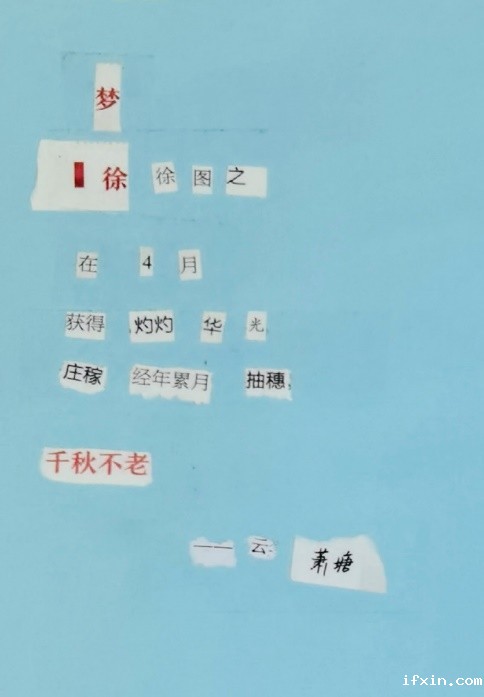 梦
徐徐图之
在4月
获得灼灼华光
庄稼经年累月抽穗,
千秋不老
——云萧塘
ifxin.com